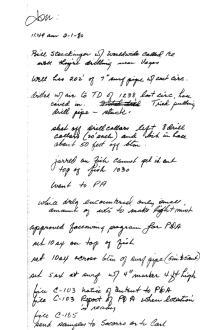 Jon:
11:49 am 2-1-80
Bill Strickinger w/ called re
well drilling near
Well has 202' of 7" surf pipe w/ cmt circ.
drilled w/ air to TD of 1238 lost circ, hole
caved in. Tried pulling
drill pipe - stuck.
shot off drill collars left 8 drill
collars (30' each) and hole in has
about 50 feet off btm.
jarred on fish cannot get it out
top of fish 1030
Want to P&A
while drlg encountered only small
amount of wtr to make light mist
approved following program for P&A
set 10 sx on top of fish
set 10 sx across btm of surf pipe
set 5 sx at surf w/ 4" marker 4 ft high
file C-103 Notice of Intent to P&A
file C-103 Report of P&A when location
is ready
file C-105
send samples to Socorro or to Carl